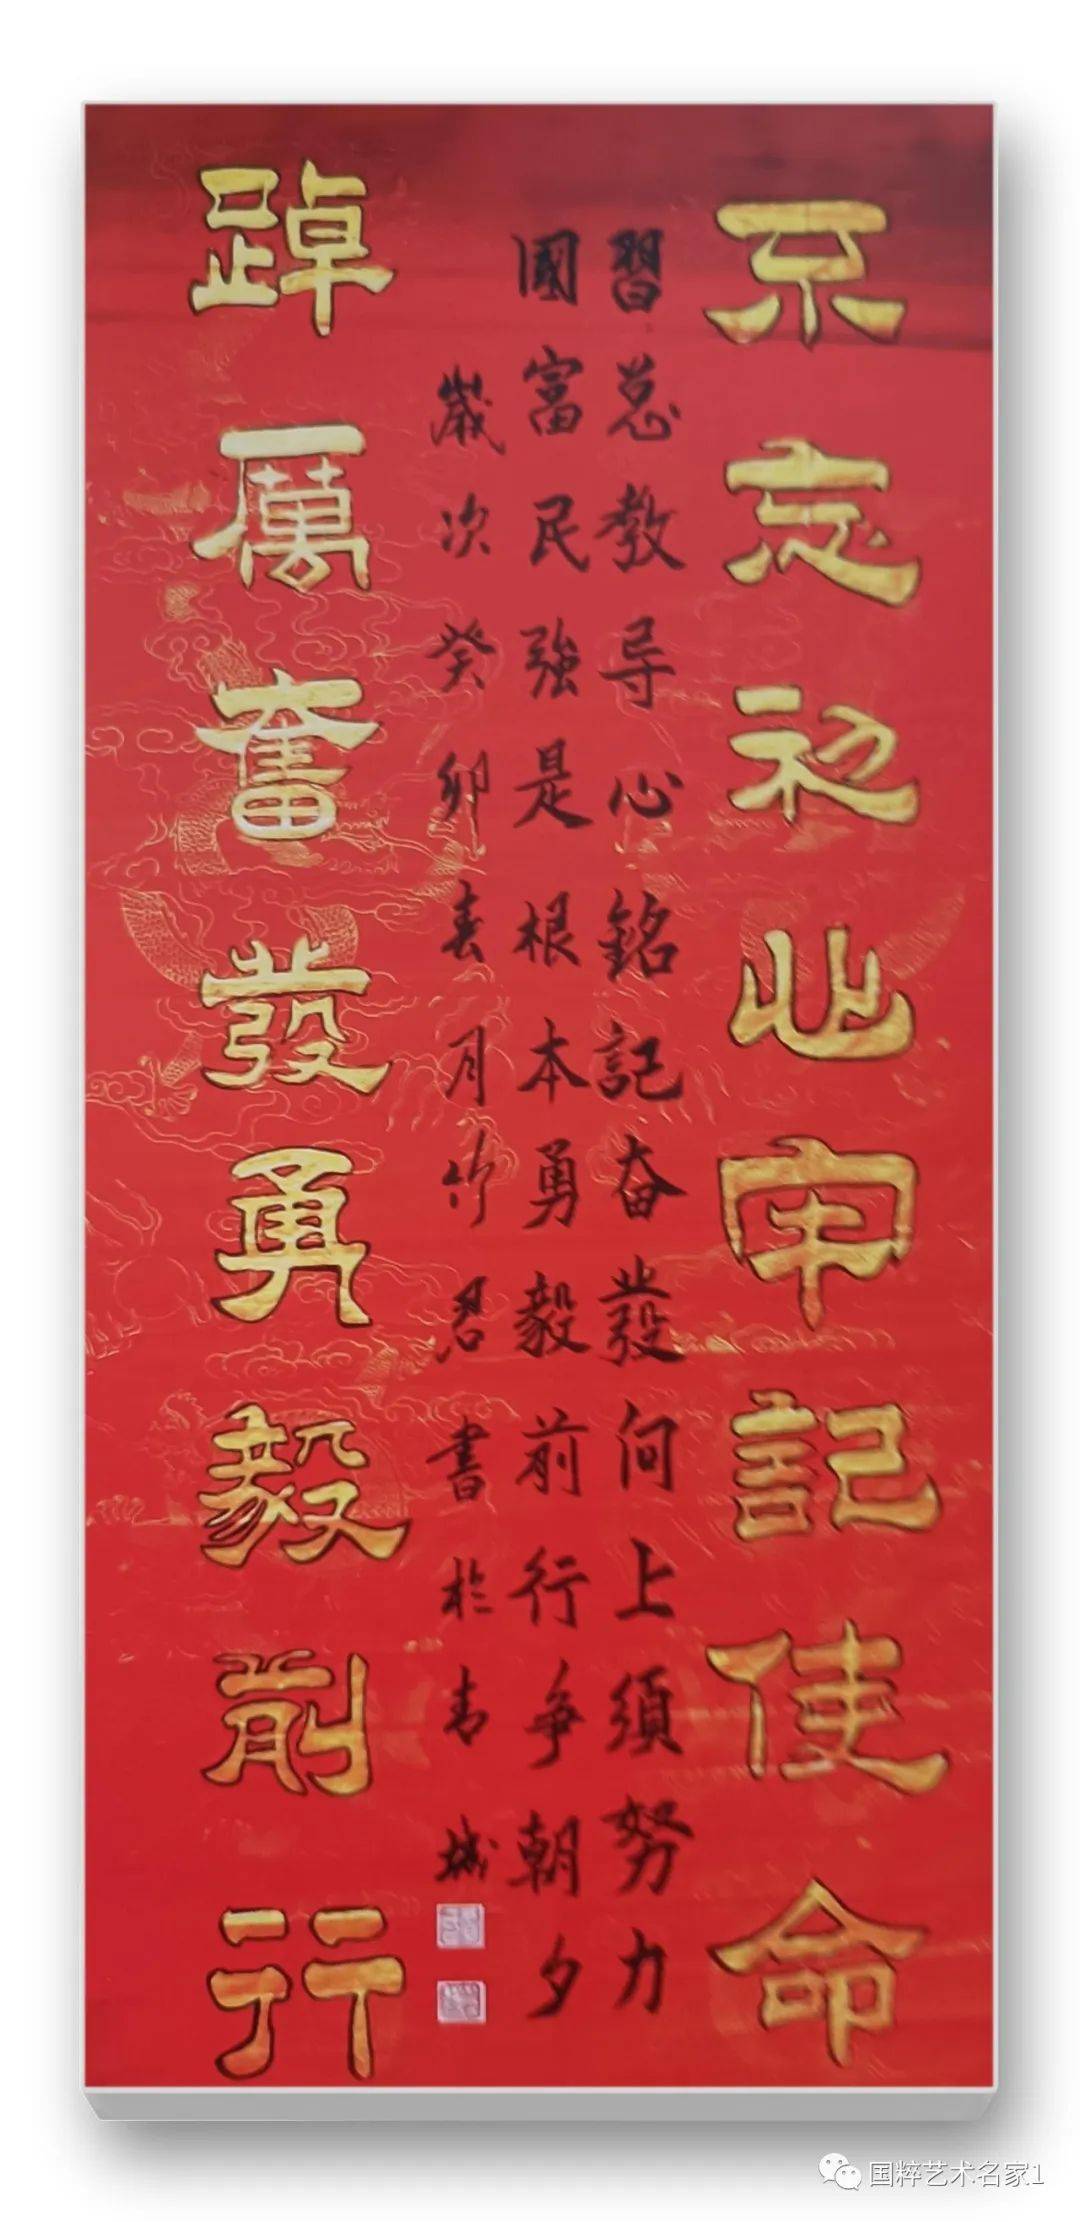 不忘初心牢記使命
習总教导心銘記奋發向上須努力
國富民強是根本勇毅前行争朝夕
歲次癸卯春月竹君書於城
踔厲奮發勇毅前行
国粹艺术名家1